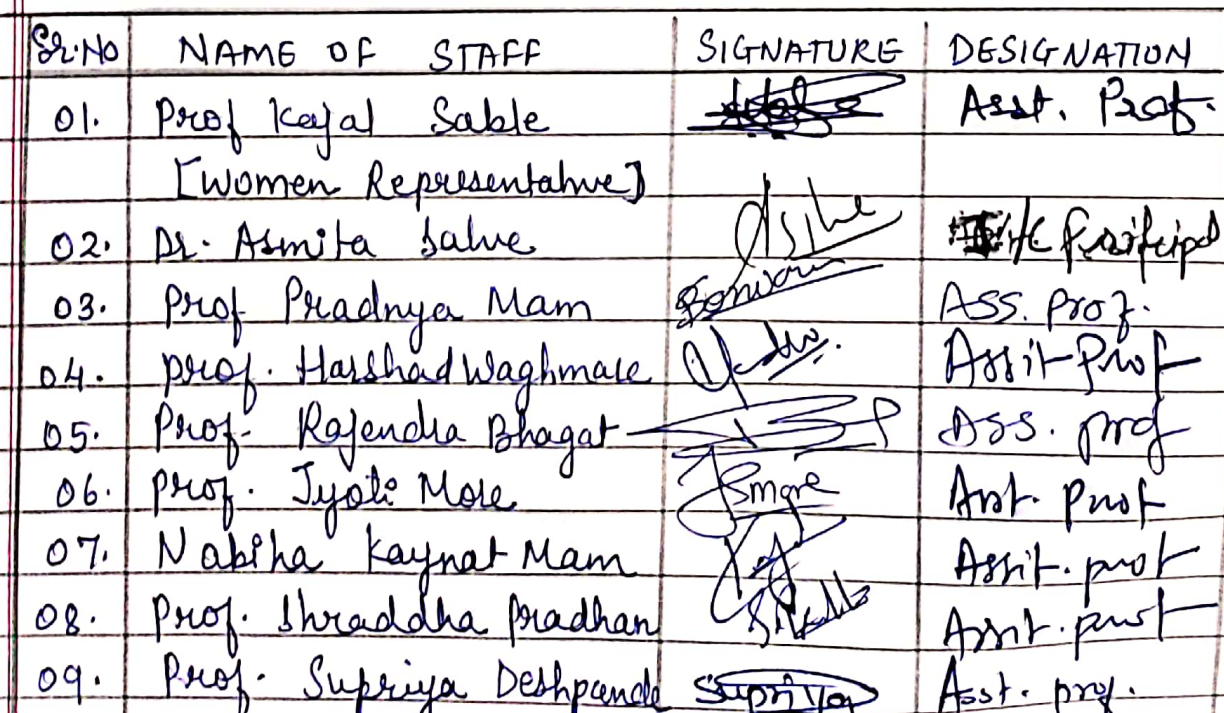 Sr.No NAME OF STAFF SIGNATURE DESIGNATION
01. Prof Kajal Sable Asst. Prof.
[Women Representative]
02. Dr. Asmita Salve I/C
03. Prof Pradnya Mam Ass. prof.
04. prof. Harshad Waghmare Assit Prof
05. Prof. Rajendra Bhagat Ass. prof
06. prof. Jyoti More Jsmore Asst. Prof
07. Nabiha Kaynat Mam Assit. prof
08. Prof. Shraddha Pradhan Assit. prof
09. Prof. Supriya Deshpande Supriya Asst. prof.